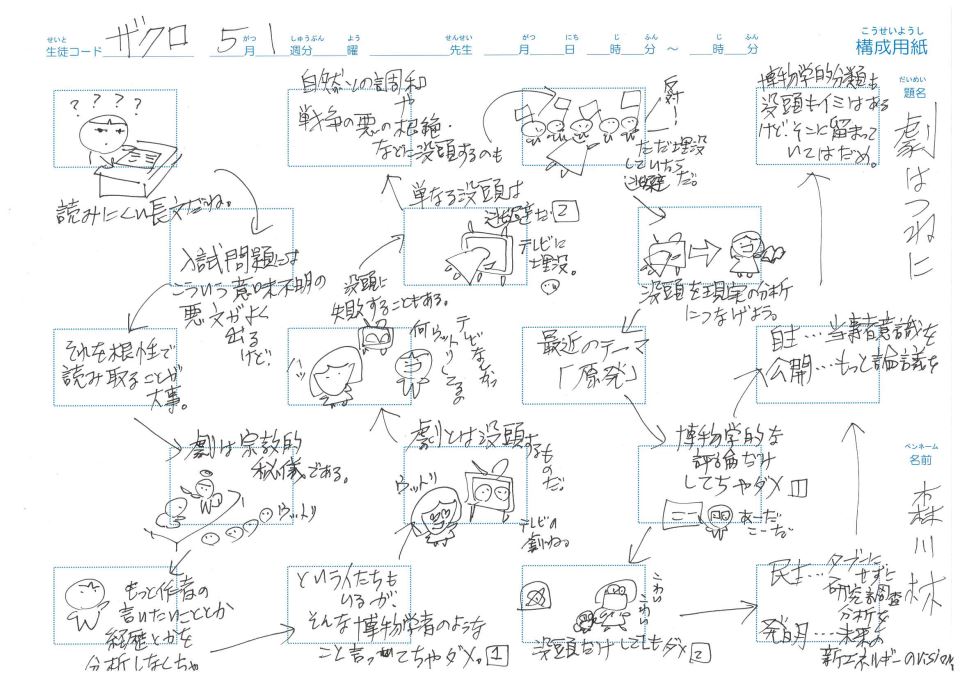 せいと
生徒コード ザクロ 5月 1週分 曜 先生 月 日 時 分 ～ 時 分
がつ しゅうぶん よう せんせい がつ にち じ ふん じ ふん
こうせいようし
構成用紙
だいめい
題名
劇はつねに
ペンネーム
名前
森川林
? ? ? ?
読みにくい長文だね。
入試問題には
こういう意味不明の
悪文がよく
出る
けど
それを根性で
読み取ることが
大事。
劇は宗教的
秘儀である。
ウットリ
もっと作者の
言いたいこととか
経歴とかを
分析しなくちゃ
という人たちも
いるが、
そんな博物学者のような
こと言ってちゃダメ。1
劇とは没頭する
ものだ。
ウットリ
テレビの
劇ね。
没頭に
失敗することもある。
テレビなんかで
何ウットリしてるの
単なる没頭は
だ 2
テレビに
埋没。
自然との調和
や
戦争の悪の根絶
などに没頭するのも
反対!
ただ埋没
していたら
だ。
没頭を現実の分析
につなげよう。
最近のテーマ
「原発」
博物学的な
評論だみ
してちゃダメ 1
あーだ
こーだ。
こわい
こわい
没頭だけしてもダメ 2
民主…タブーに
せずに
研究調査
分析を
発明…未来の
新エネルギーのvision
自主…当事者意識を
公開…もっと論議を
博物学的分類も
没頭もイミはある
けど、そこに留まって
いてはだめ。